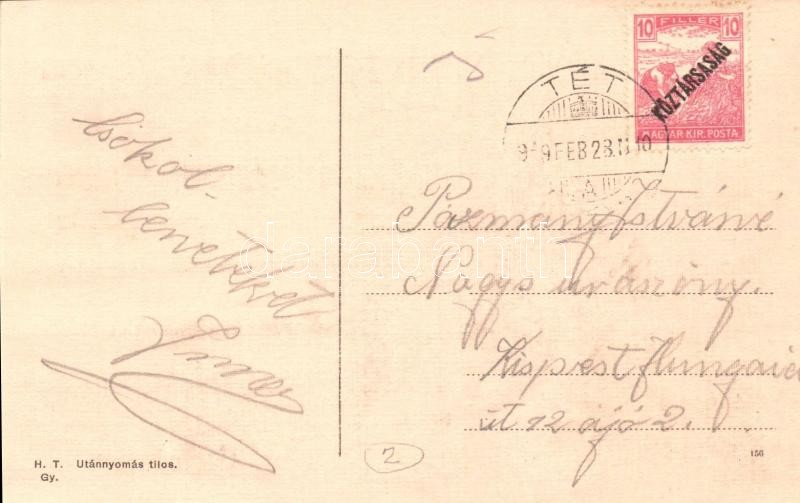 Csókol-
benneteket
Imre
10 FILLÉR 10
KÖZTÁRSASÁG
MAGYAR KIR. POSTA
TÉT
919 FEB 28. N 10
Pázmány Istvánné
Nagys úrasszony.
Kispest Hungária
út 12 ajó 2.
darabanth
H. T. Utánnyomás tilos.
Gy.
2
156